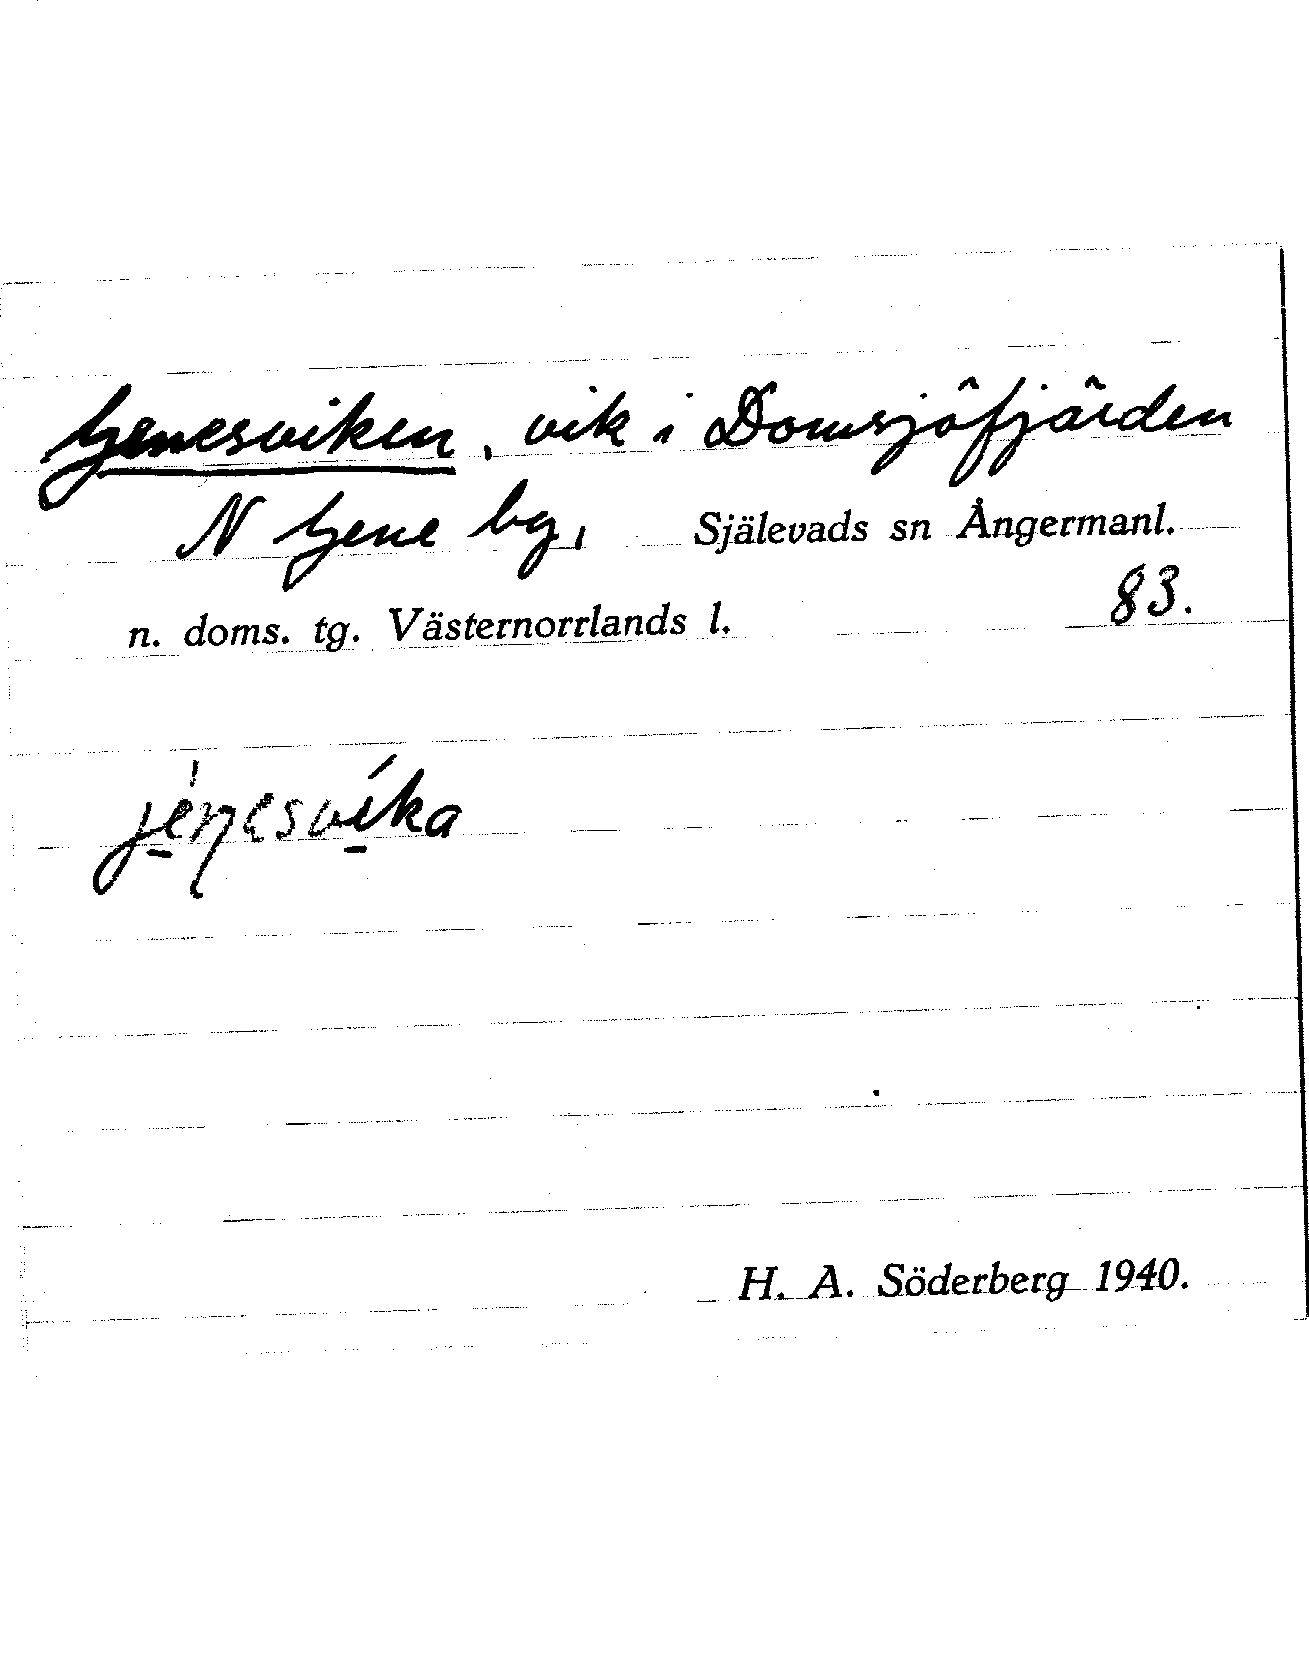 Genesviken, vik i Domsjöfjärden
N Gene by, Själevads sn Ångermanl.
n. doms. tg. Västernorrlands l. 83.
jéŋesvíka
H. A. Söderberg 1940.